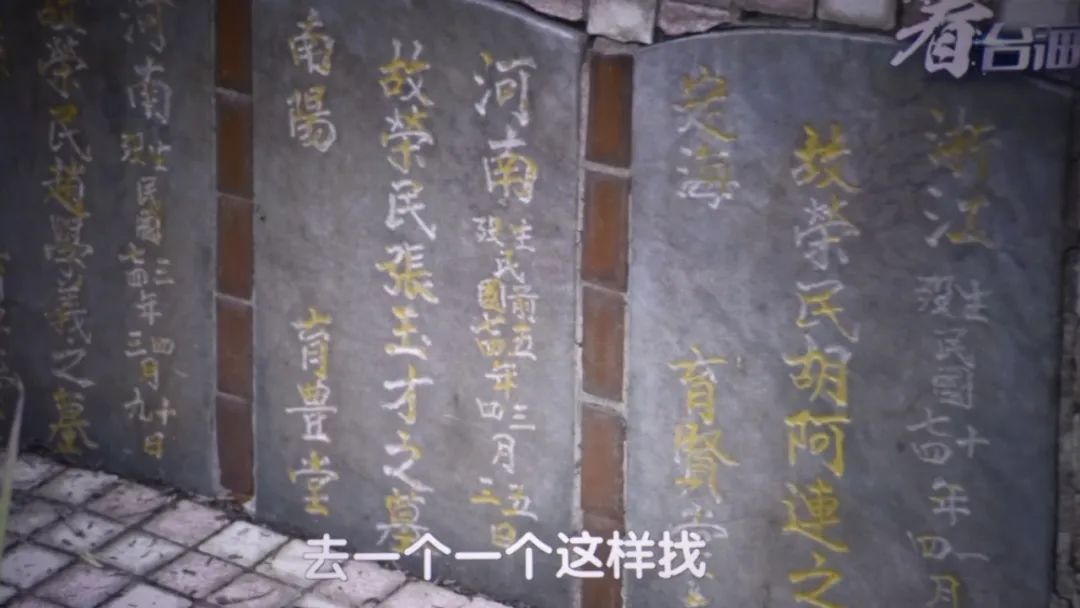 看台海
浙江 生歿民國十七四年一四月
故榮民胡阿連之
定海 育賢堂
河南 生歿民前國五七四年三四月五三日
故榮民張玉才之墓
南陽 育豊堂
河南 生歿民國三七四年四三月十九日
榮民趙學義之墓
去一个一个这样找